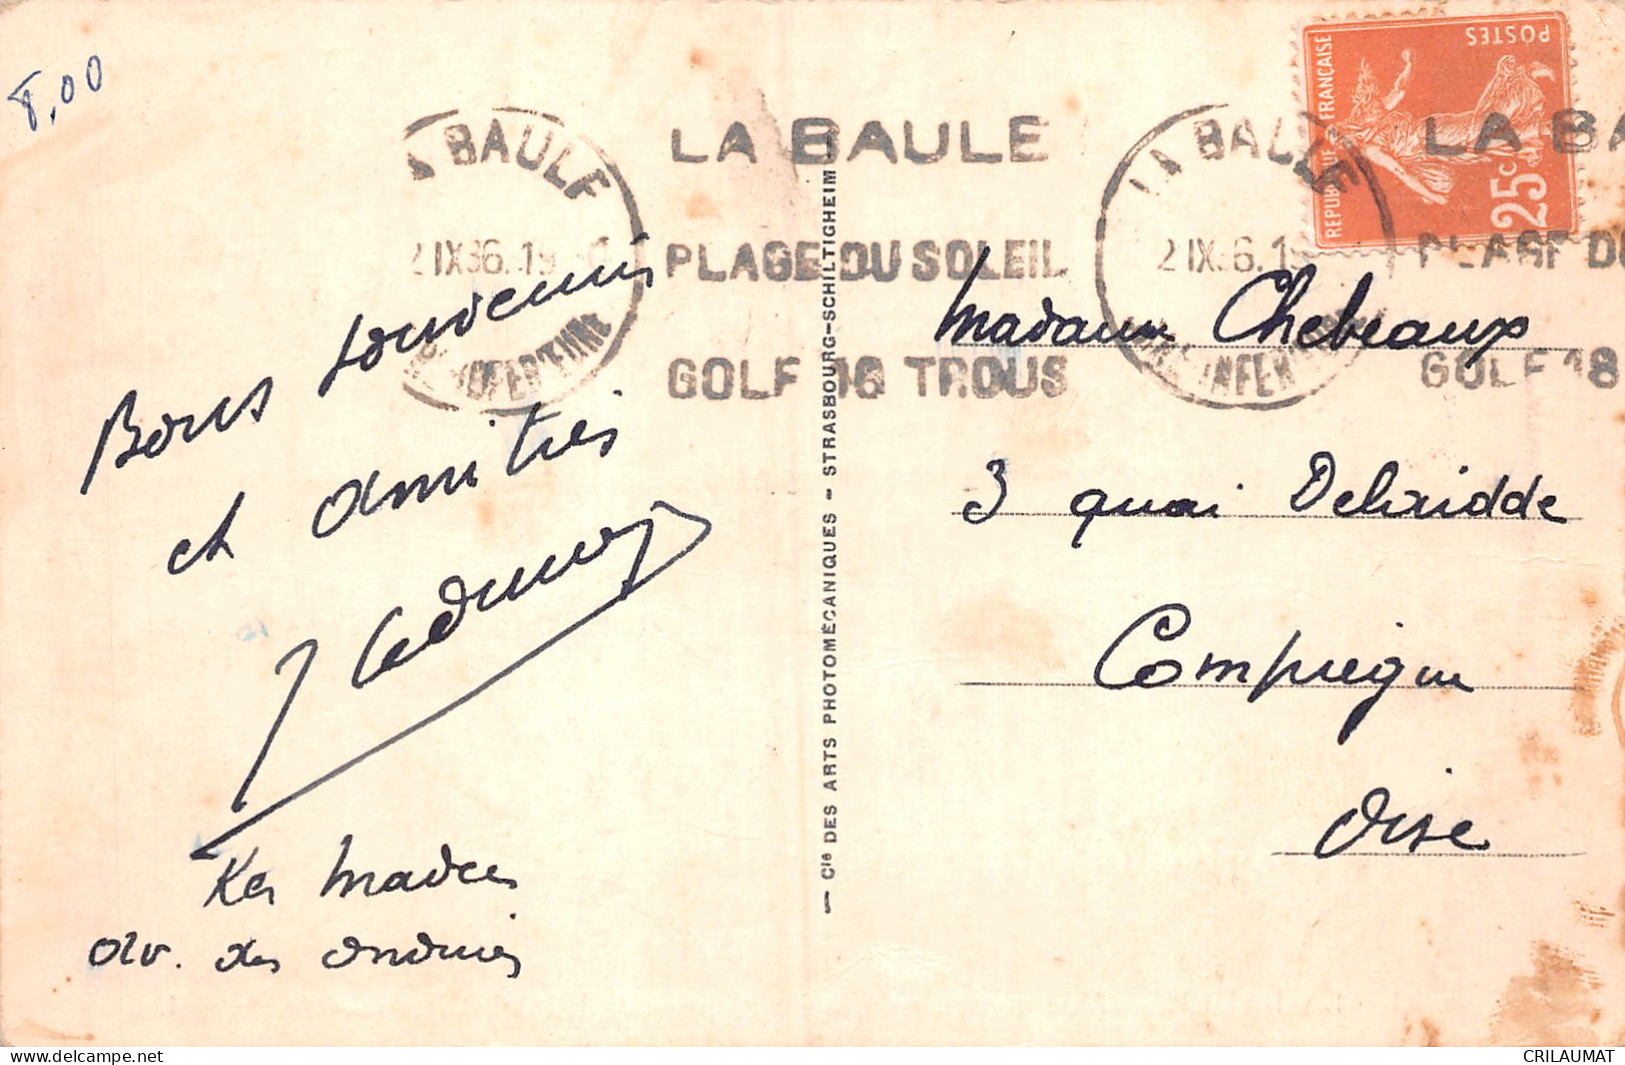 8,00
LA BAULE
2 IX 36. 19
LOIRE INFERIEURE
LA BAULE
PLAGE DU SOLEIL
GOLF 18 TROUS
LA BAULE
2 IX 36. 19
LOIRE INFERIEURE
LA BA
PLAGE DU
GOLF 18
POSTES
REPUBLIQUE FRANÇAISE
25c
Bons souvenirs
et amitiés
Ker
av. des
Cie DES ARTS PHOTOMÉCANIQUES - STRASBOURG-SCHILTIGHEIM
Madame Chebeaux
3 quai Delaidde
Compiègne
Oise
delcampe.net
CRILAUMAT